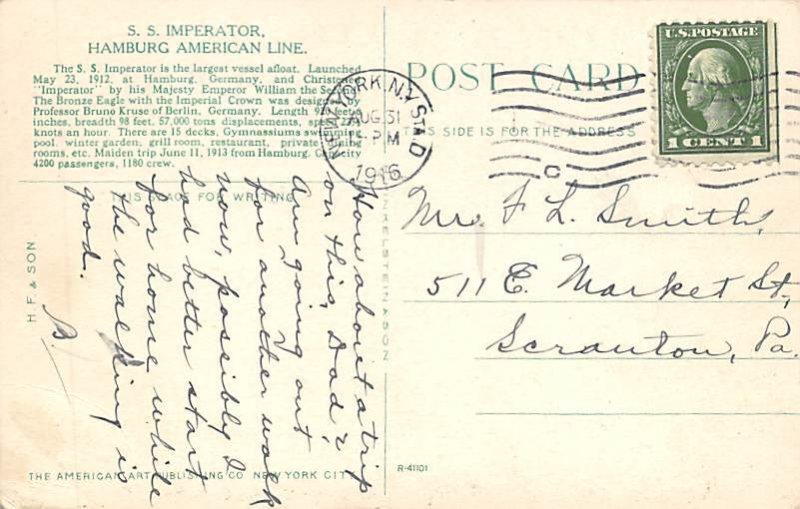 S. S. IMPERATOR,
HAMBURG AMERICAN LINE.
The S. S. Imperator is the largest vessel afloat. Launched
May 23, 1912, at Hamburg, Germany, and Christened
"Imperator" by his Majesty Emperor William the
The Bronze Eagle with the Imperial Crown was designed by
Professor Bruno Kruse of Berlin, Germany. Length
inches, breadth 98 feet. 57,000 tons displacements,
knots an hour. There are 15 decks, Gymnassiums swimming
pool, winter garden, grill room, restaurant, private dining
rooms, etc. Maiden trip June 11, 1913 from Hamburg. Capacity
4200 passengers, 1180 crew.
POST CARD
THIS SIDE IS FOR THE ADDRESS
U.S. POSTAGE
1 CENT 1
NEW YORK, N.Y. STA D
AUG 31
PM
1916
C
THIS SPACE FOR WRITING
How about a trip
on this, Dad?
Am going out
for another walk
now, possibly I
had better start
for home while
the walking is
good.
B.
Mr. F. L. Smith,
511 E. Market St,
Scranton, Pa.
H. F. & SON
FINKELSTEIN & SON
THE AMERICAN ART PUBLISHING CO. NEW YORK CITY
R-41101